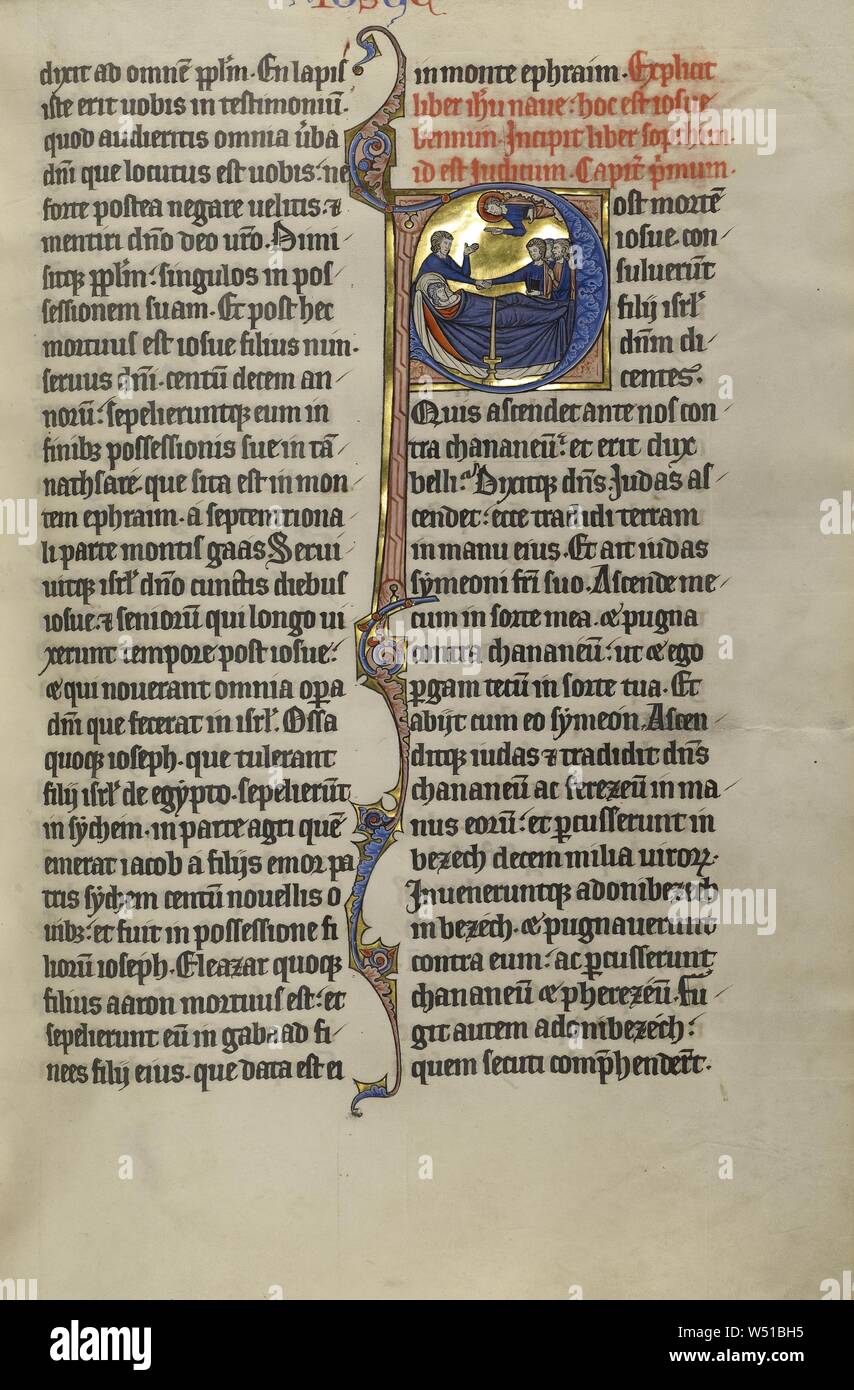 IOSUE
dixit ad omnē pplm̄. En lapis
iste erit uobis in testimoniū.
quod audieritis omnia ūba
dn̄i que locutus est uobis: ne
forte postea negare uelitis. ⁊
mentiri dn̄o deo ur̄o. Dimi
sitqꝫ pplm̄: singulos in pos
sessionem suam. Et post hec
mortuus est iosue filius nun.
seruus dn̄i. centū decem an
norū: sepelieruntqꝫ eum in
finibꝫ possessionis sue in tā
nathsare. que sita est in mon
tem ephraim. a septentriona
li parte montis gaas. Serui
uitqꝫ isrł dn̄o cunctis diebus
iosue. ⁊ seniorū qui longo ui
xerunt tempore post iosue:
⁊ qui nouerant omnia opa
dn̄i que fecerat in isrł. Ossa
quoqꝫ ioseph. que tulerant
filij isrł de egypto. sepelierūt
in sychem. in parte agri quē
emerat iacob a filijs emor pa
tris sychem centū nouellis o
uibꝫ: et fuit in possessione fi
liorū ioseph. Eleazar quoqꝫ
filius aaron mortuus est: et
sepelierunt eū in gabaad fi
nees filij eius. que data est ei
in monte ephraim. Explicit
liber ihu naue: hoc est iosue
bennun. Incipit liber sopthim.
id est Iudicum. Capit p̄mum.
Post mortē
iosue. con
suluerūt
filij isrł
dn̄m di
centes.
Quis ascendet ante nos con
tra chananeū: et erit dux
belli: Dixitqꝫ dn̄s. Iudas as
cendet: ecce tradidi terram
in manu eius. Et ait iudas
symeoni fri suo. Ascende me
cum in sorte mea. ⁊ pugna
contra chananeū: ut ⁊ ego
pgam tecū in sorte tua. Et
abijt cum eo symeon. Ascen
ditqꝫ iudas ⁊ tradidit dn̄s
chananeū ac ferezeū in ma
nus eorū: et pcusserunt in
bezech decem milia uiroꝝ.
Inueneruntqꝫ adonibezech
in bezech. ⁊ pugnauerunt
contra eum: ac pcusserunt
chananeū ⁊ pherezeū. Fu
git autem adonibezech:
quem secuti comp̄hendert̄.
alamy
Image ID: W51BH5
www.alamy.com